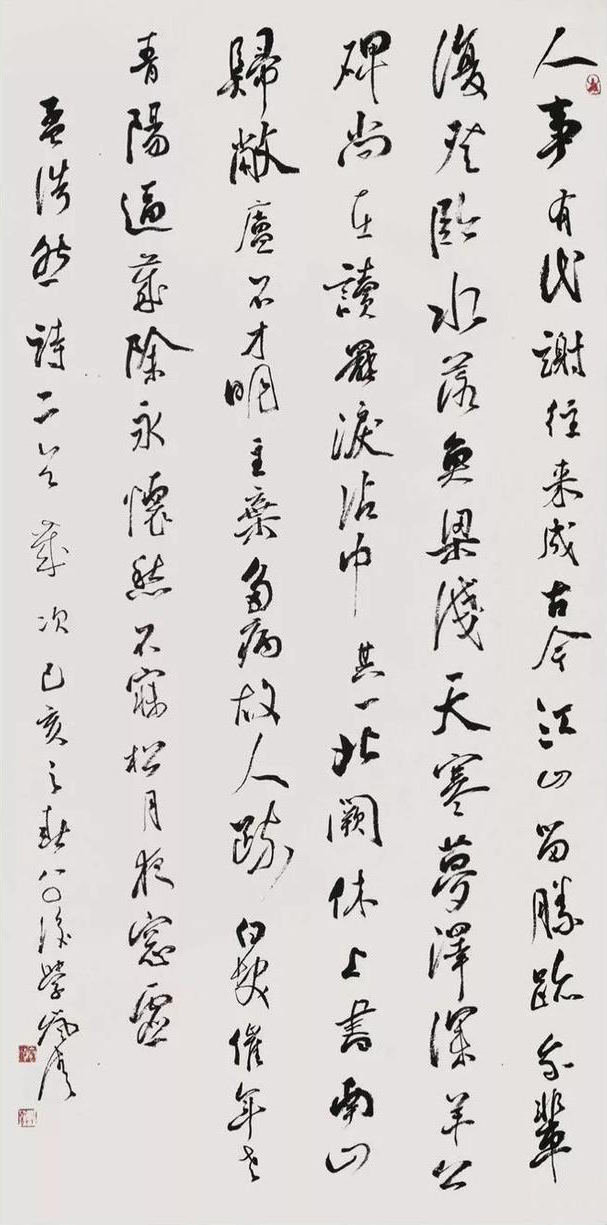 人事有代謝往来成古今江山留勝跡我輩
復登臨水落魚梁淺天寒夢澤深羊公
碑尚在讀罷淚沾巾其一北闕休上書南山
歸敝廬不才明主棄多病故人疏白髮催年老
青陽逼歲除永懷愁不寐松月夜窓虛
孟浩然詩二首歲次己亥之春八〇後學